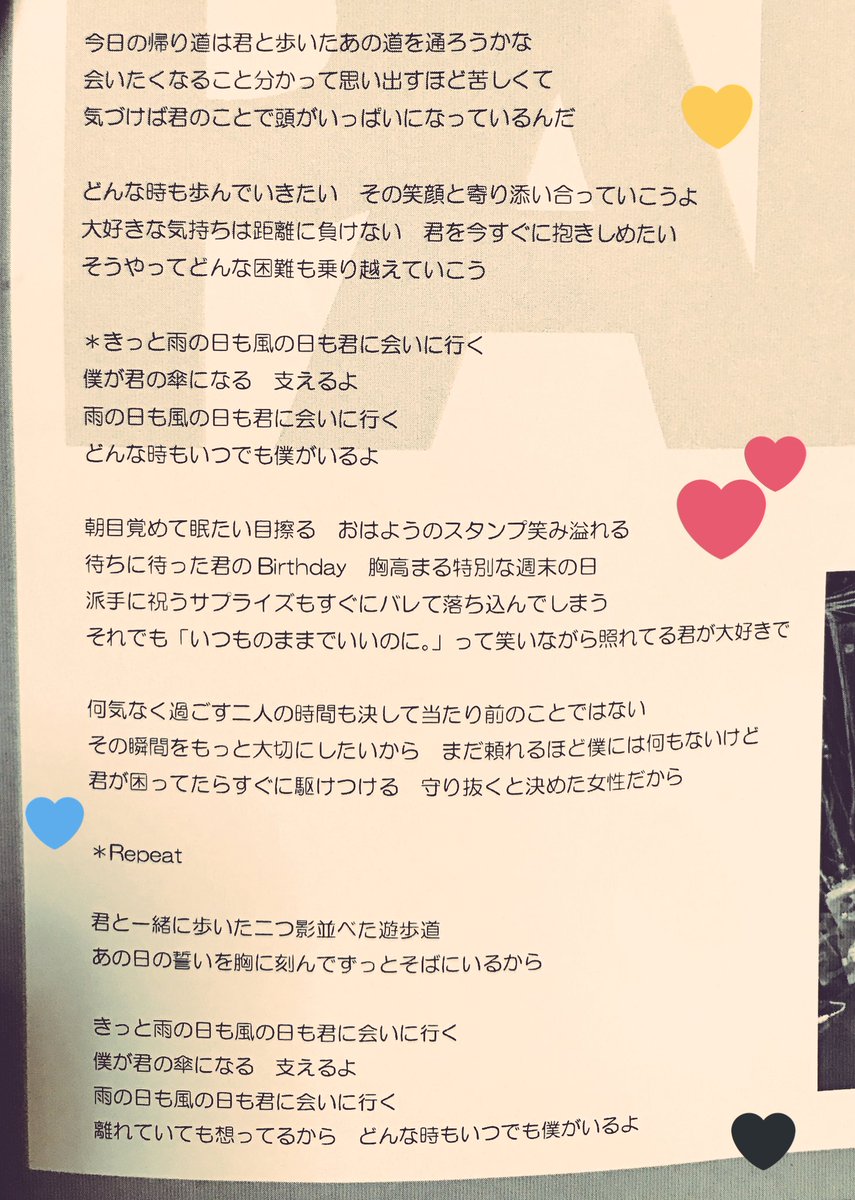 今日の帰り道は君と歩いたあの道を通ろうかな
会いたくなること分かって思い出すほど苦しくて
気づけば君のことで頭がいっぱいになっているんだ
どんな時も歩んでいきたい　その笑顔と寄り添い合っていこうよ
大好きな気持ちは距離に負けない　君を今すぐに抱きしめたい
そうやってどんな困難も乗り越えていこう
＊きっと雨の日も風の日も君に会いに行く
僕が君の傘になる　支えるよ
雨の日も風の日も君に会いに行く
どんな時もいつでも僕がいるよ
朝目覚めて眠たい目擦る　おはようのスタンプ笑み溢れる
待ちに待った君のBirthday　胸高まる特別な週末の日
派手に祝うサプライズもすぐにバレて落ち込んでしまう
それでも「いつものままでいいのに。」って笑いながら照れてる君が大好きで
何気なく過ごす二人の時間も決して当たり前のことではない
その瞬間をもっと大切にしたいから　まだ頼れるほど僕には何もないけど
君が困ってたらすぐに駆けつける　守り抜くと決めた女性だから
＊Repeat
君と一緒に歩いた二つ影並べた遊歩道
あの日の誓いを胸に刻んでずっとそばにいるから
きっと雨の日も風の日も君に会いに行く
僕が君の傘になる　支えるよ
雨の日も風の日も君に会いに行く
離れていても想ってるから　どんな時もいつでも僕がいるよ